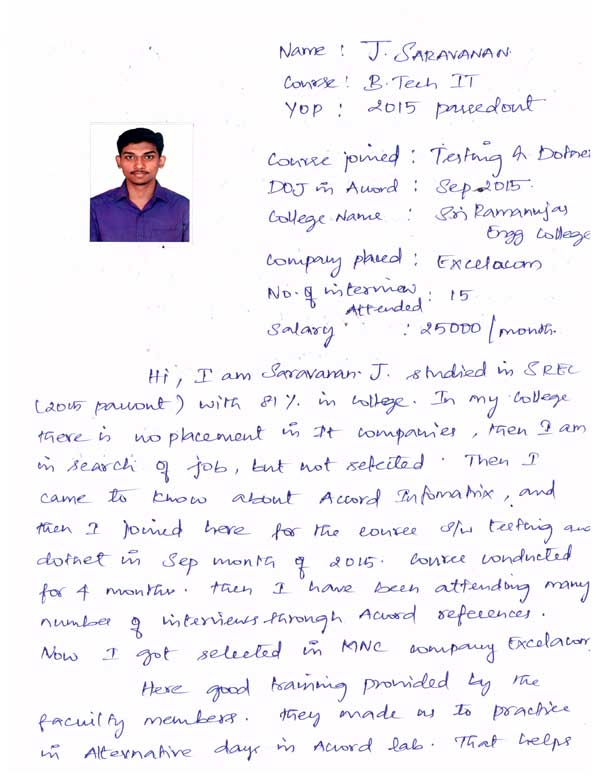 Name : J. SARAVANAN.
Course : B.Tech IT
YOP : 2015 passedout
Course joined : Testing & Dotne
DOJ in Accord : Sep 2015.
College Name : Sri Ramanujar
Engg College
Company placed : Excelacom
No. of interview : 15
Attended
Salary : 25000/month.
Hi, I am Saravanan. J. studied in SREC
(2015 passout) with 81% in college. In my college
there is no placement in It companies, then I am
in search of job, but not selected. Then I
came to know about Accord Infomatrix, and
then I joined here for the course s/w testing and
dotnet in Sep month of 2015. Course conducted
for 4 months. Then I have been attending many
number of interviews through Accord references.
Now I got selected in MNC company Excelacom
Here good training provided by the
faculty members. They made us to practice
in Alternative days in Accord lab. That helps